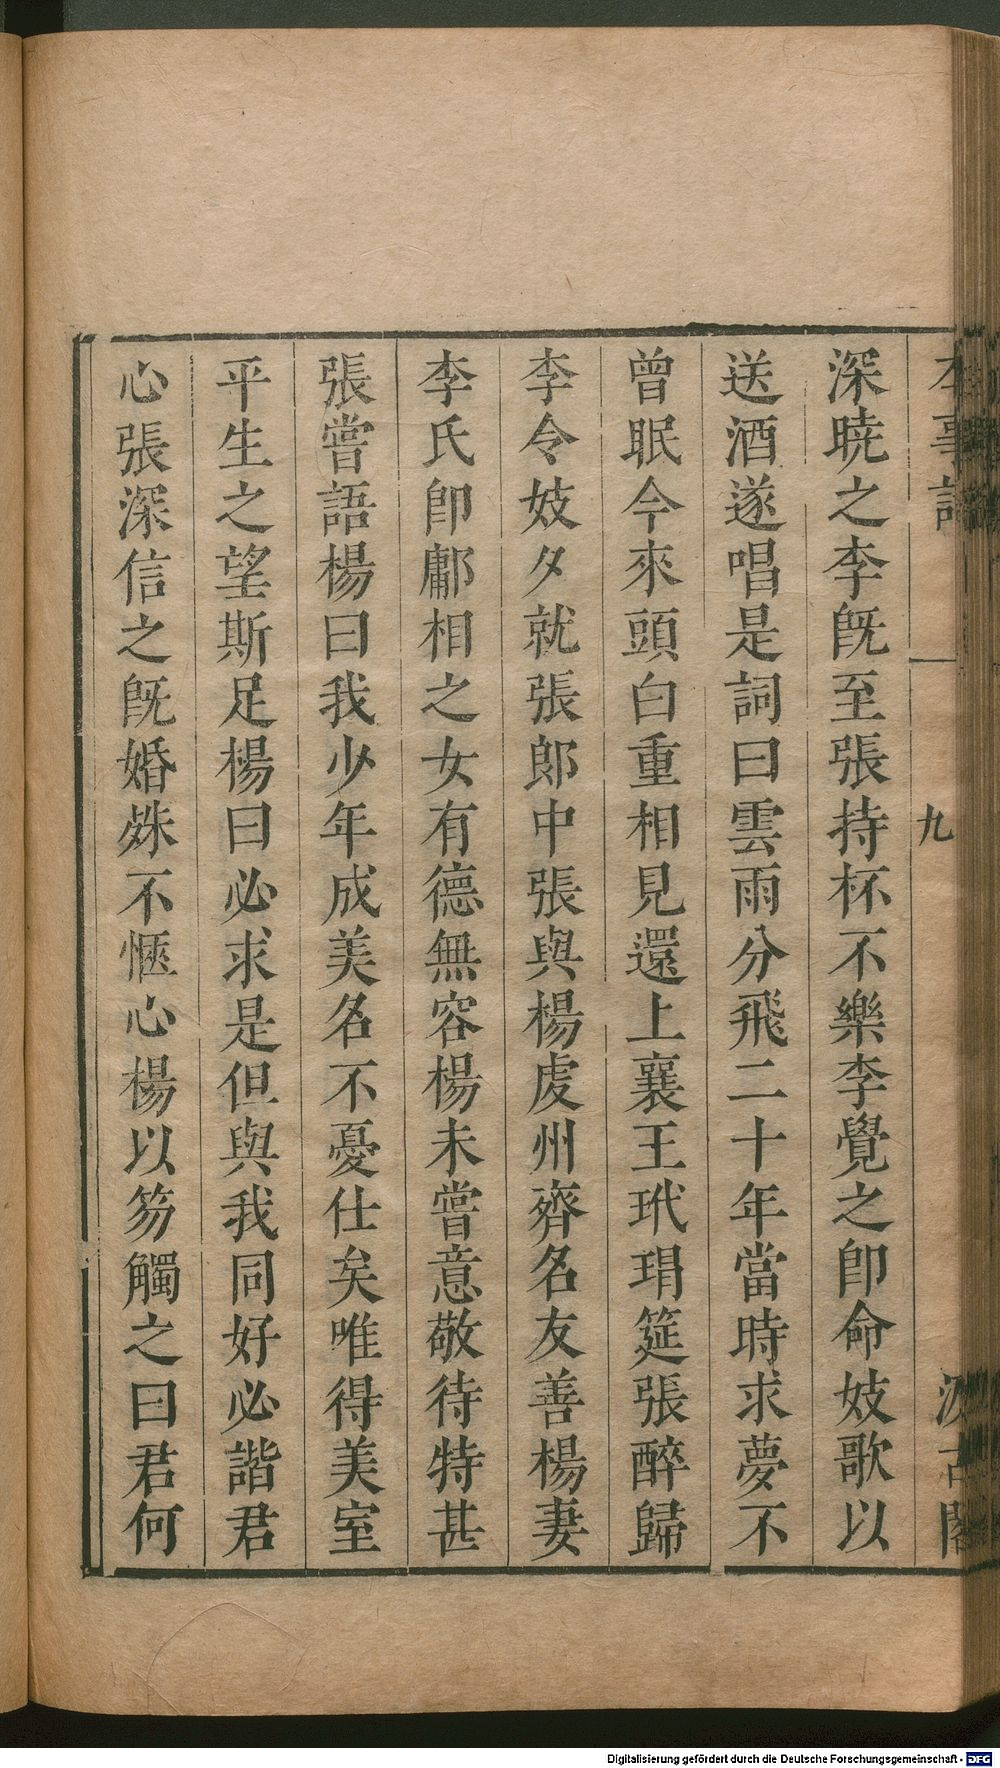 本事詩 九 汲古閣
深暁之李旣至張持杯不樂李覺之卽命妓歌以
送酒遂唱是詞曰雲雨分飛二十年當時求夢不
曾眠今來頭白重相見還上襄王玳瑁筵張醉歸
李令妓夕就張郎中張與楊虔州齊名友善楊妻
李氏卽鄘相之女有德無容楊未嘗意敬待特甚
張嘗語楊曰我少年成美名不憂仕矣唯得美室
平生之望斯足楊曰必求是但與我同好必諧君
心張深信之旣婚殊不愜心楊以笏觸之曰君何
Digitalisierung gefördert durch die Deutsche Forschungsgemeinschaft - DFG